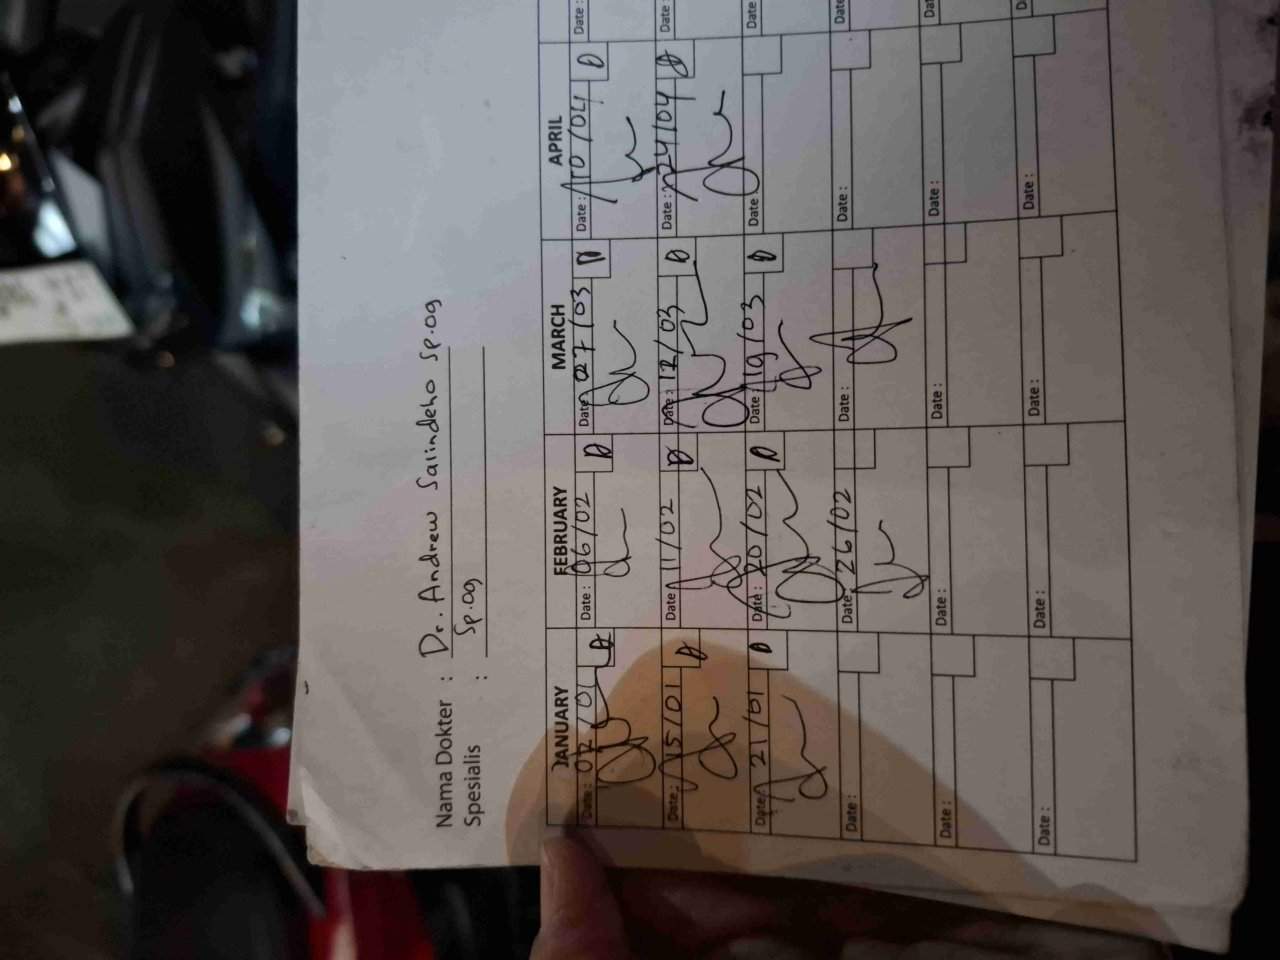 Nama Dokter : Dr. Andrew Sarindeho Sp.og
Spesialis : Sp.og
JANUARY FEBRUARY MARCH APRIL
Date : 02/01 D Date : 06/02 D Date : 07/03 D Date : 10/04 D Date :
Date : 15/01 D Date : 11/02 D Date : 12/03 D Date : 24/04 D Date :
Date : 21/01 D Date : 20/02 D Date : 19/03 D Date : Date
Date : Date : 26/02 Date : Date : Date
Date : Date : Date : Date : Dat
Date : Date : Date : Date : D